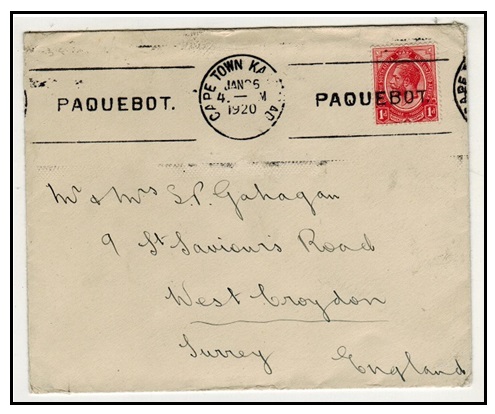 PAQUEBOT.
CAPE TOWN
JAN
4.
1920
PAQUEBOT.
1d 1d
Mr & Mrs S.P. Gahagan
9 St Saviour's Road
West Croydon
Surrey England